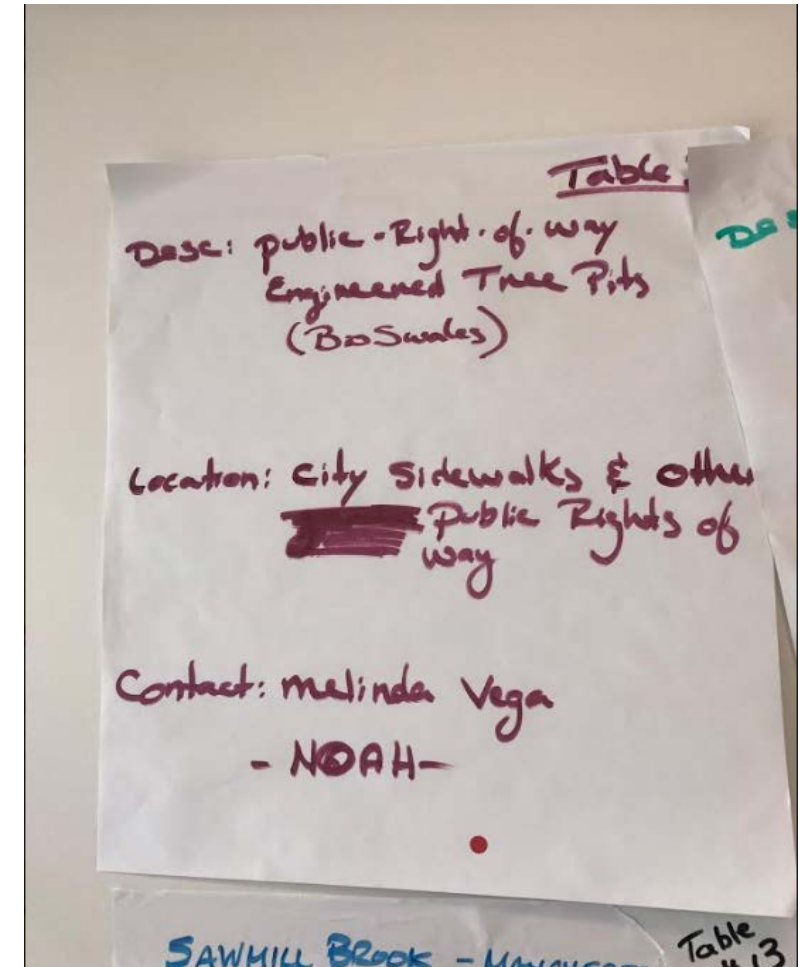 Table
Desc: public-Right-of-way
Engineered Tree Pits
(BioSwales)
Location: City Sidewalks & other
Public Rights of
way
Contact: Melinda Vega
- NOAH -
SAWMILL BROOK -
Table
13